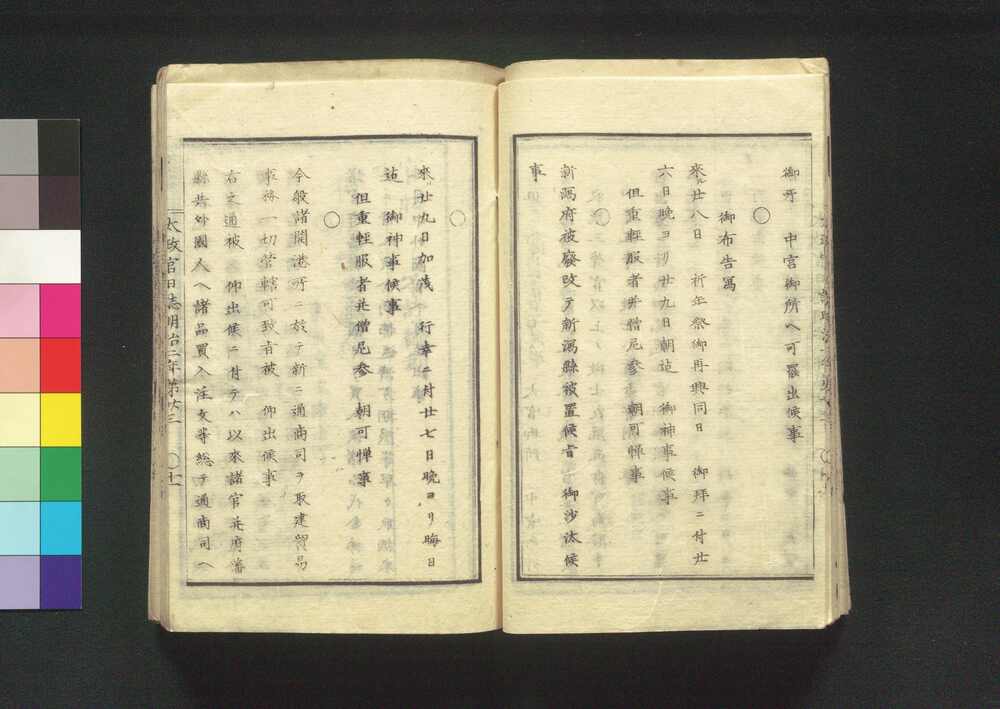 御所　中宮御所ヘ可罷出候事
○
御布告寫
來ル廿八日　祈年祭御再興同日　御拜ニ付廿
六日晩ヨリ廿九日朝迄　御神事候事
但重輕服者并僧尼參　朝可憚事
新潟府被廢改テ新潟縣被置候旨　御沙汰候
事
○
來ル廿九日加茂　行幸ニ付廿七日晩ヨリ晦日
迄　御神事候事
但重輕服者并僧尼參　朝可憚事
○
今般諸開港所ニ於テ新ニ通商司ヲ取建貿易
事務一切管轄可致旨被　仰出候事
右之通被　仰出候ニ付テハ以來諸官并府藩
縣共外國人ヘ諸品買入注文等總テ通商司ヘ
太政官日誌明治二年第廿三　○十一